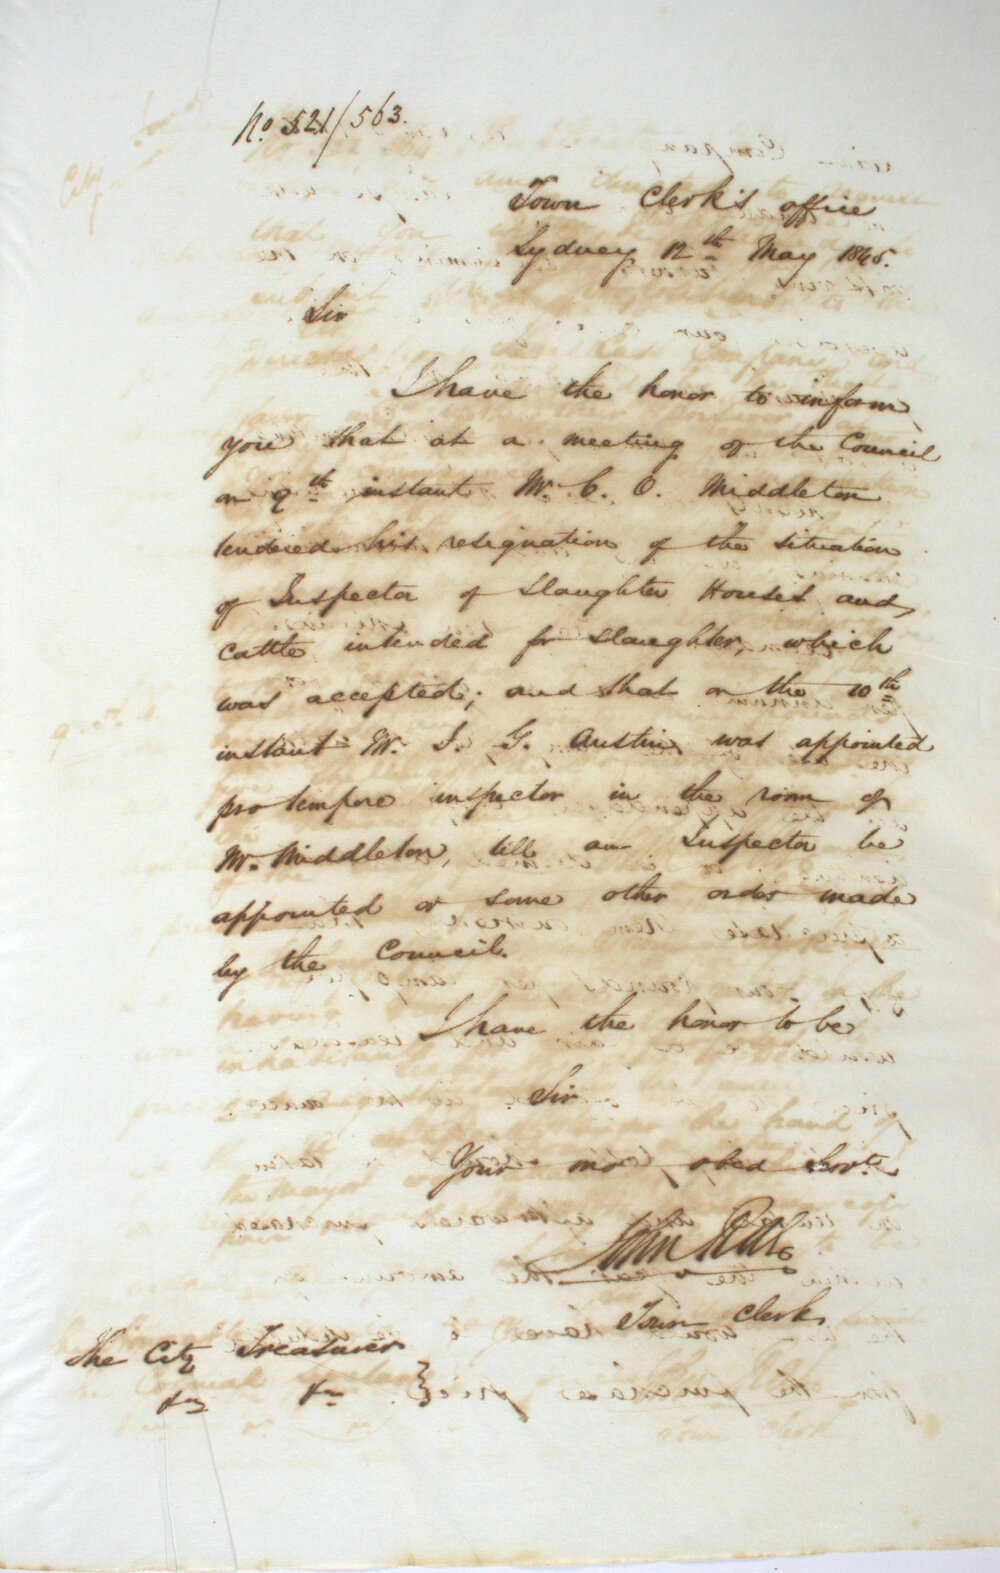 No. 521/563.
Town Clerk's office
Sydney 12th May 1845.
Sir
I have the honor to inform
you that at a meeting of the Council
on 9th instant Mr. C. O. Middleton
tendered his resignation of the situation
of Inspector of Slaughter Houses and
cattle intended for slaughter, which
was accepted; and that on the 10th
instant Mr. J. G. Austin was appointed
pro tempore inspector in the room of
Mr. Middleton, till an Inspector be
appointed or some other order made
by the Council.
I have the honor to be
Sir
Your mo obed Servt.
John
Town Clerk
The City Treasurer
&c &c